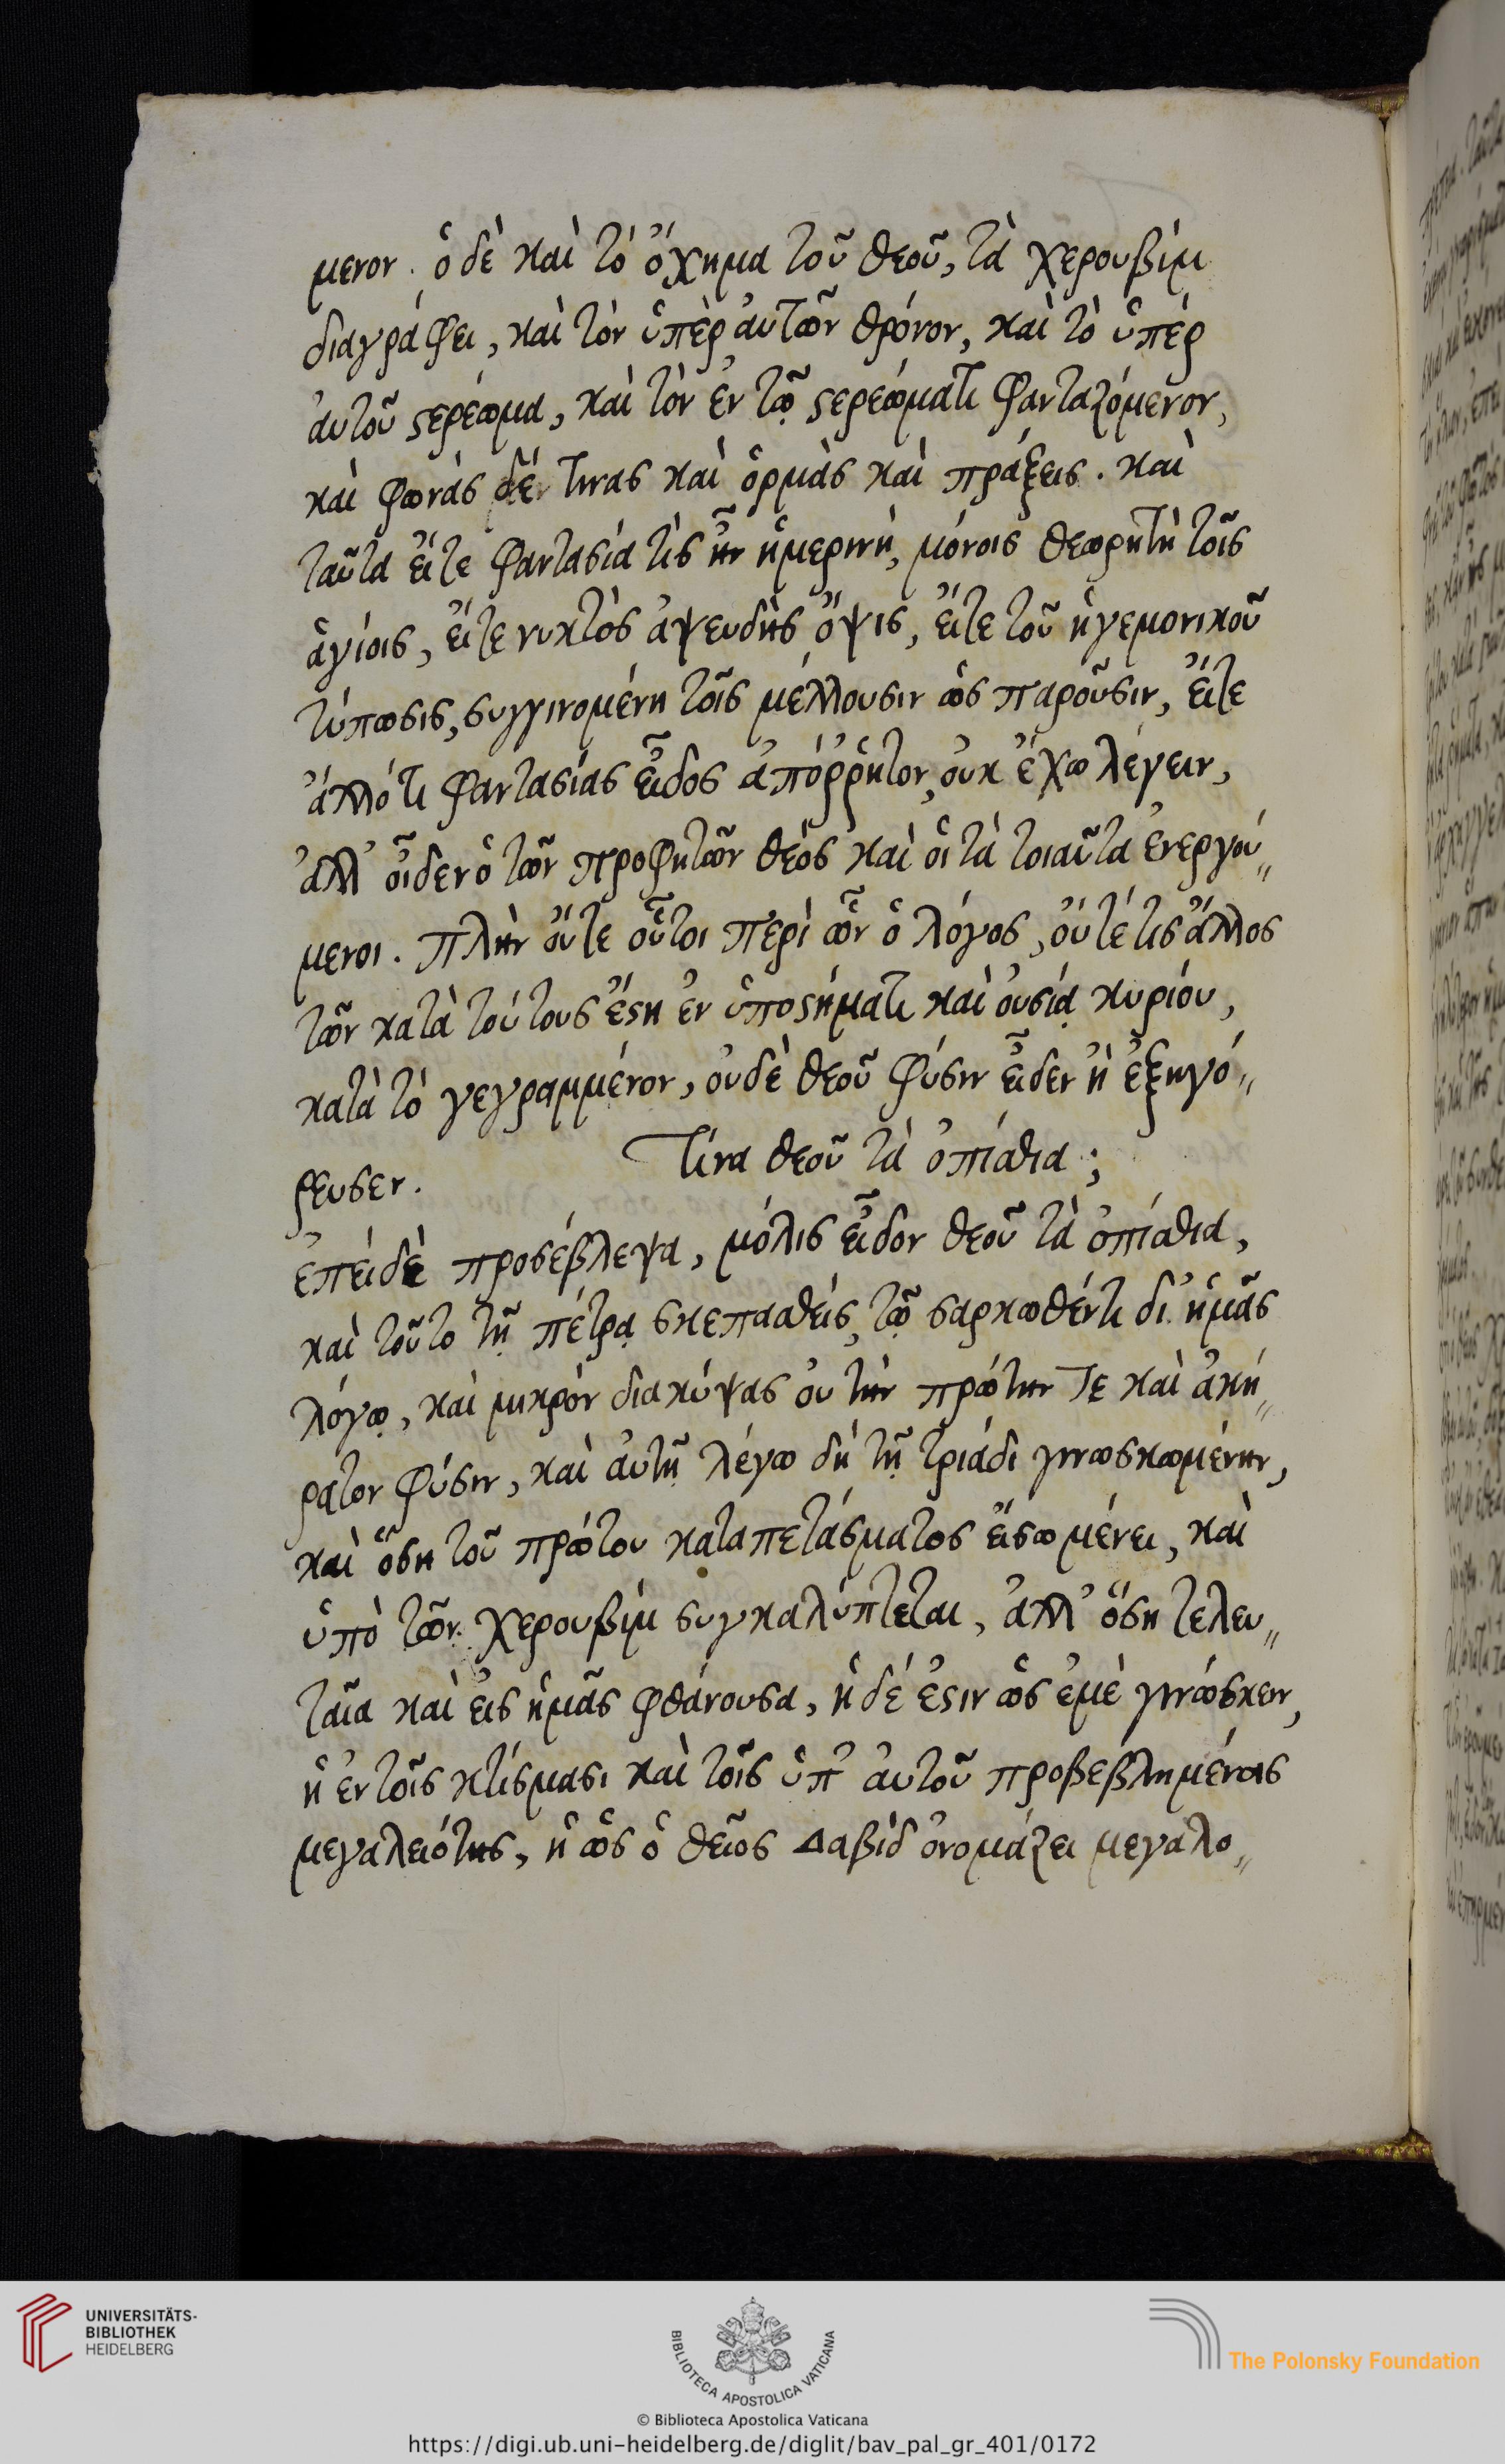 μενον. ὁ δὲ καὶ τὸ ὄχημα τοῦ θεοῦ, τὰ χερουβὶμ
διαγράφει, καὶ τὸν ὑπὲρ ἀυτῶν θρόνον, καὶ τὸ ὑπὲρ
ἀυτοῦ ϛερέωμα, καὶ τὸν ἐν τῷ ϛερεώματι φανταζόμενον,
καὶ φωνὰς δέ τινας καὶ ὁρμὰς καὶ πράξεις. καὶ
ταῦτα ἔιτε φαντασία τὶς ἦν ἡμερινὴ, μόνοις θεωρητὴ τοῖς
ἁγίοις, ἔιτε νυκτὸς ἀψευδὴς ὄψις, ἔιτε τοῦ ἡγεμονικοῦ
τύπωσις, συγγινομένη τοῖς μέλλουσιν ὡς παροῦσιν, ἔιτε
ἄλλό τι φαντασίας ἶειδος ἀπόῤῥητον, ὀυκ ἔχω λέγειν,
ἀλλ' ὀῖδεν ὁ τῶν προφητῶν θεὸς καὶ ὁι τὰ τοιαῦτα ἐνεργού〃
μενοι. πλὴν ὄυτε ὁῦτοι περὶ ὧν ὁ λόγος, ὄυτέ τις ἄλλος
τῶν κατὰ τούτους ἔϛη ἐν ὑποϛήματι καὶ ὀυσίᾳ κυρίου,
κατὰ τὸ γεγραμμένον, ὀυδὲ θεοῦ φύσιν ἐῖδεν ἢ ἐξηγό〃
ρευσεν.
Τίνα θεοῦ τὰ ὀπίσθια;
ἐπεὶ δὲ προσέβλεψα, μόλις ἐῖδον θεοῦ τὰ ὀπίσθια,
καὶ τοῦτο τῇ πέτρᾳ σκεπασθεὶς, τῷ σαρκωθέντι δι' ἡμᾶς
λόγῳ, καὶ μικρὸν διακύψας ὀυ τὴν πρώτην τε καὶ ἀκή〃
ρατον φύσιν, καὶ ἀυτῇ λέγω δὴ τῇ τριάδι γινωσκωμένην,
καὶ ὅση τοῦ πρώτου καταπετάσματος ἔισω μένει, καὶ
ὑπὸ τῶν χερουβὶμ συγκαλύπτεται, ἀλλ' ὅση τελευ〃
ταῖα καὶ ἐις ἡμᾶς φθάνουσα, ἡ δέ ἐϛιν ὡς ἐμὲ γινώσκειν,
ἡ ἐν τοῖς κτίσμασι καὶ τοῖς ὑπ' ἀυτοῦ προβεβλημένοις
μεγαλειότης, ἢ ὡς ὁ θεῖος Δαβὶδ ὀνομάζει μεγαλο〃
UNIVERSITÄTS-
BIBLIOTHEK
HEIDELBERG
BIBLIOTECA APOSTOLICA VATICANA
The Polonsky Foundation
© Biblioteca Apostolica Vaticana
https://digi.ub.uni-heidelberg.de/diglit/bav_pal_gr_401/0172